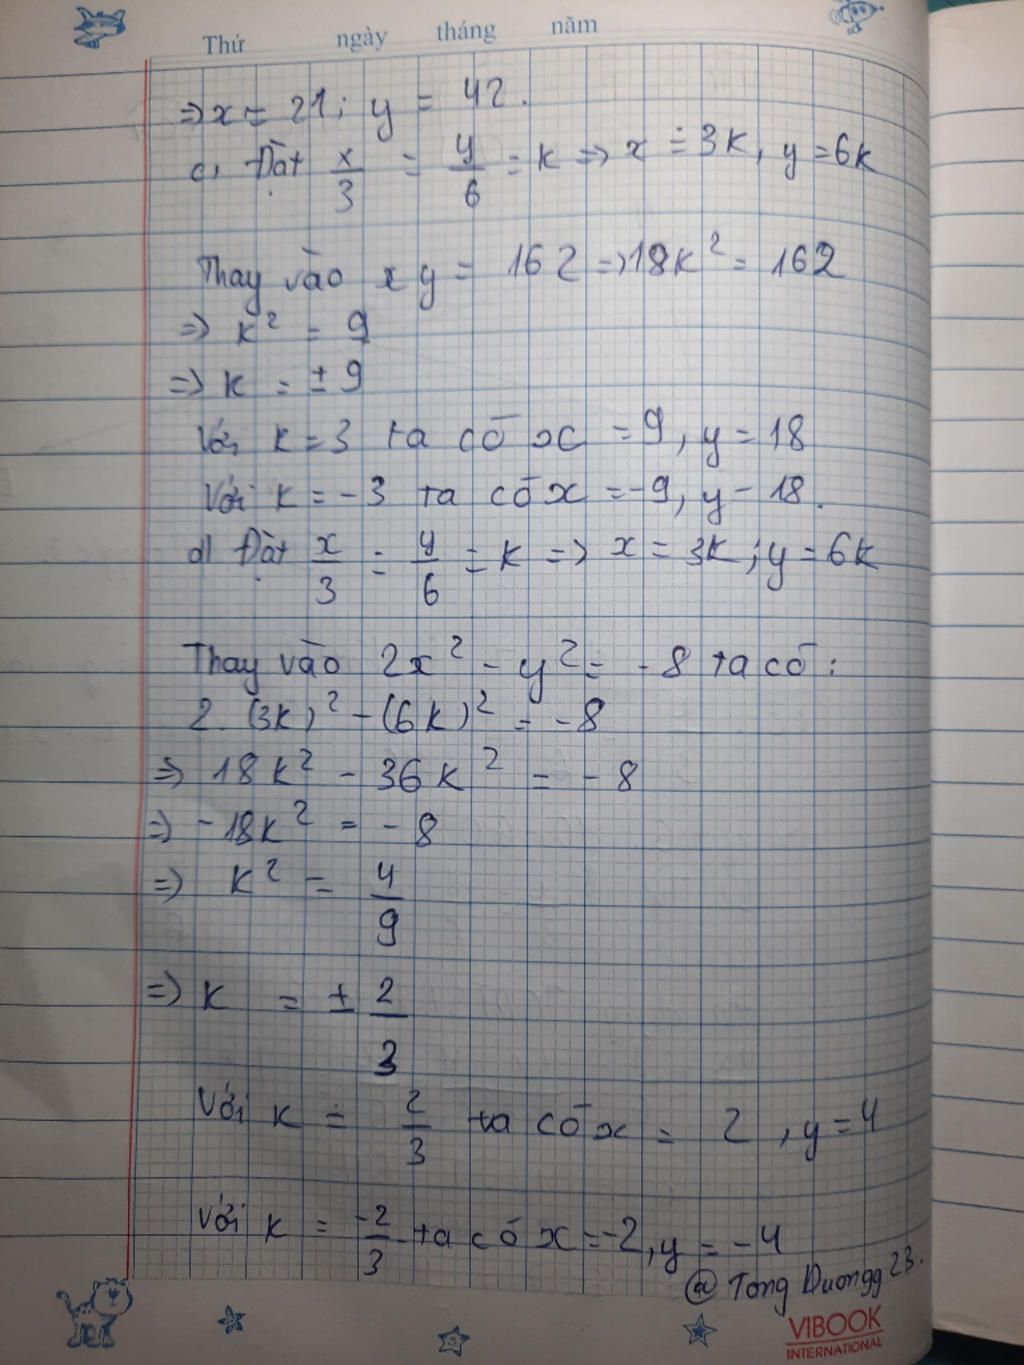 Thứ ngày tháng năm
=> x = 21; y = 42.
c, Đặt x/3 = y/6 = k => x = 3k, y = 6k
Thay vào xy = 162 => 18k² = 162
=> k² = 9
=> k = ± 9
Với k = 3 ta có x = 9, y = 18
Với k = -3 ta có x = -9, y - 18.
d) Đặt x/3 = y/6 = k => x = 3k; y = 6k
Thay vào 2x² - y² = -8 ta có:
2. (3k)² - (6k)² = -8
=> 18k² - 36k² = -8
=> -18k² = -8
=> k² = 4/9
=> k = ± 2/3
Với k = 2/3 ta có x = 2, y = 4
Với k = -2/3 ta có x = -2, y = -4
@ Tong Duongg 23.
VIBOOK
INTERNATIONAL